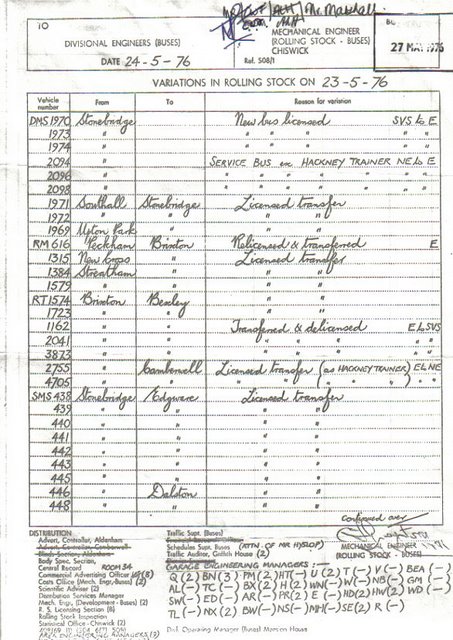 TO
DIVISIONAL ENGINEERS (BUSES)
DATE 24-5-76
MECHANICAL ENGINEER
(ROLLING STOCK - BUSES)
CHISWICK
Ref. 508/1
27 MAY 1976
VARIATIONS IN ROLLING STOCK ON 23-5-76
Vehicle number From To Reason for variation
DMS 1970 Stonebridge New bus licensed SVS to E
1973 " " " "
1974 " " " "
2094 " SERVICE BUS ex HACKNEY TRAINER NE to E
2096 " " " " " " "
2098 " " " " " " "
1971 Southall Stonebridge Licensed transfer
1972 " " " "
1969 Upton Park " " "
RM 616 Peckham Brixton Relicensed & transferred E
1315 New Cross " Licensed transfer
1384 Streatham " " "
1579 " " " "
RT 1574 Brixton Bexley " "
1723 " " " "
1162 " Transferred & delicensed E to SVS
2041 " " " "
3873 " " " "
2755 " Camberwell Licensed transfer (as HACKNEY TRAINER) E to NE
4705 " " " " ( " " ) " "
SMS 438 Stonebridge Edgware Licensed transfer
439 " " " "
440 " " " "
441 " " " "
442 " " " "
443 " " " "
445 " " " "
446 " Dalston " "
448 " " " "
continued over
MECHANICAL ENGINEER
(ROLLING STOCK - BUSES)
DISTRIBUTION
Advert. Controller, Aldenham
Body Spec. Section,
Central Record ROOM 34
Commercial Advertising Officer
Costs Office (Mech. Engr., Buses) (2)
Scientific Adviser (2)
Distribution Services Manager
Mech. Engr., (Development - Buses) (2)
R. S. Licensing Section (6)
Rolling Stock Inspection
Statistical Office (2)
AREA ENGINEERING MANAGERS (3)
Traffic Supt. (Buses)
Schedules Supt. Buses (ATTN. OF MR HYSLOP)
Traffic Auditor, Griffith House (2)
GARAGE ENGINEERING MANAGERS :-
Q (2) BN (3) PM (2) HT (-) U (2) T (-) V (-) BEA (-)
AL (-) TC (-) BX (2) H (2) W (-) NB (-) GM (-)
SW (-) ED (-) AR (-) PR (2) E (-) HD (2) HW (2) WD (-)
TL (-) NX (2) BW (-) NS (-) MH (-) SE (2) R (-)
Operating Manager (Buses) Mansion House